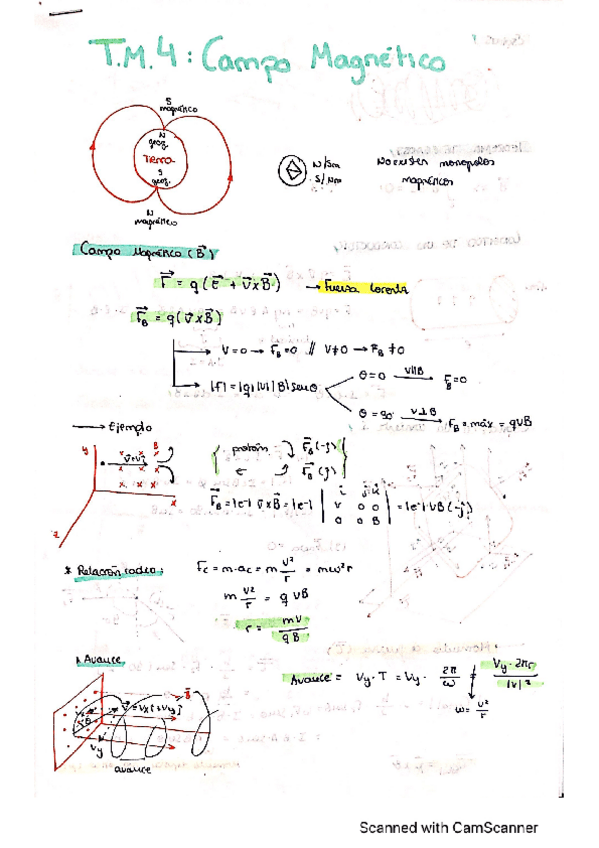 T.M.4: Campo Magnético
S
magnético
N
geog.
Tierra
S
geog.
N
magnético
N/Sm
S/Nm
No existen monopolos
magnéticos
Campo Magnético (B⃗)
F⃗ = q(E⃗ + v⃗xB⃗) → Fuerza Lorentz
F⃗B = q(v⃗xB⃗)
V=0 → FB=0 // V≠0 → FB≠0
|F|=|q||v||B|senθ
θ=0 V∥B FB=0
θ=90° V⊥B FB=máx = qVB
→ Ejemplo
y
B
x
z
protón F⃗B(-j)
e- F⃗B(j)
F⃗B=|e-| v⃗xB⃗=|e-| | i j k | =|e-|VB(-j)
V 0 0
0 0 B
* Relación radio: Fc = m·ac = m V²/r = mω²r
m V²/r = q VB
r = mV/qB
* Avance
Avance = Vy·T = Vy· 2π/ω = Vy·2πr/|V|²
ω= V²/r
B⃗
V⃗=Vxi+Vyj
Vy
avance
Scanned with CamScanner